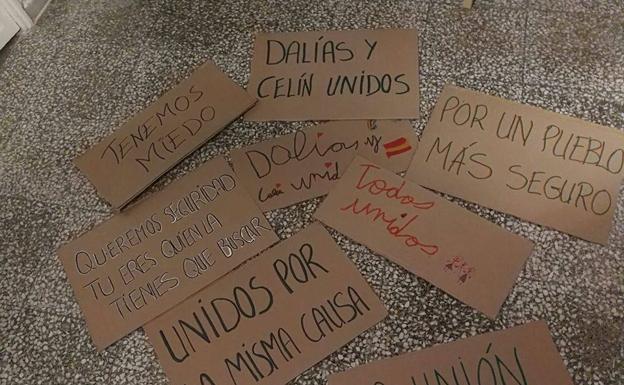 DALÍAS Y
CELÍN UNIDOS
TENEMOS
MIEDO
Dalías y
Celín unid
POR UN PUEBLO
MÁS SEGURO
QUEREMOS SEGURIDAD
TU ERES QUIEN LA
TIENES QUE BUSCAR
Todos
unidos
UNIDOS POR
LA MISMA CAUSA
UNIÓN